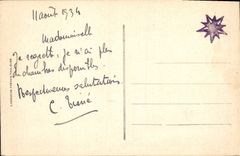 11 aout 1934
Mademoiselle
Je regrette, je n'ai plus
de chambres disponibles.
Respectueuses salutations
C.